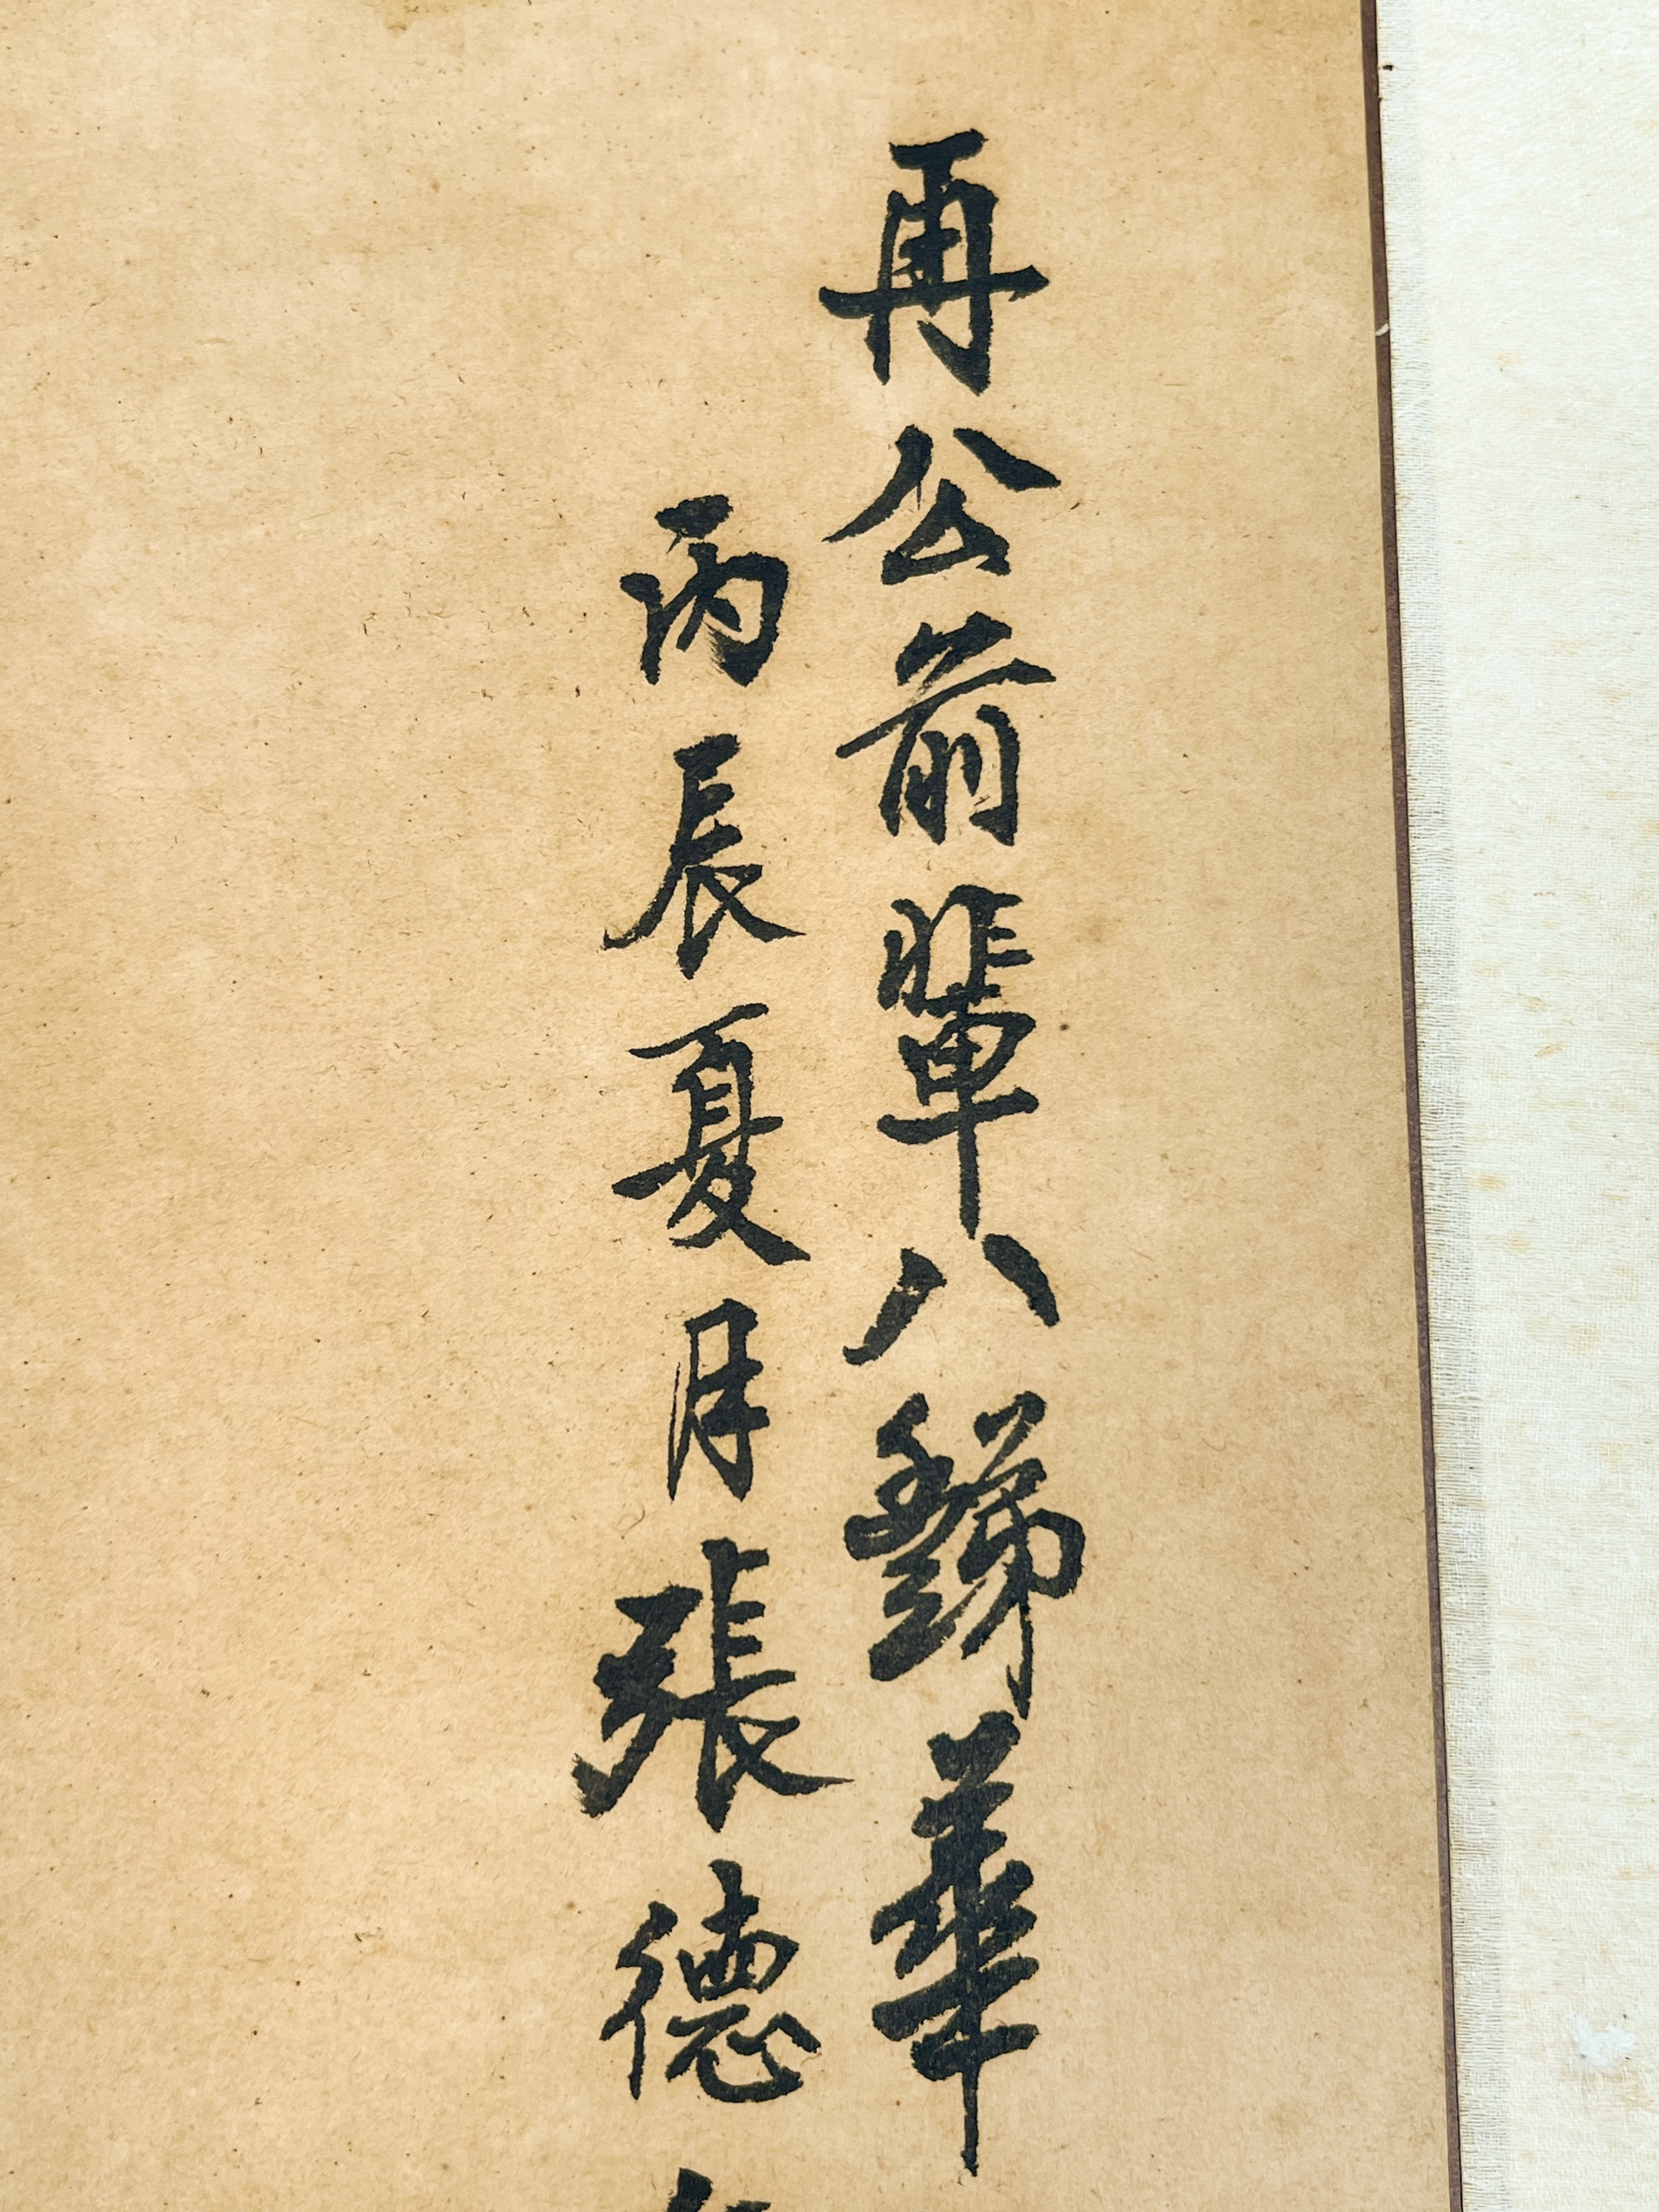 再公前輩八豑華
丙辰夏月張德